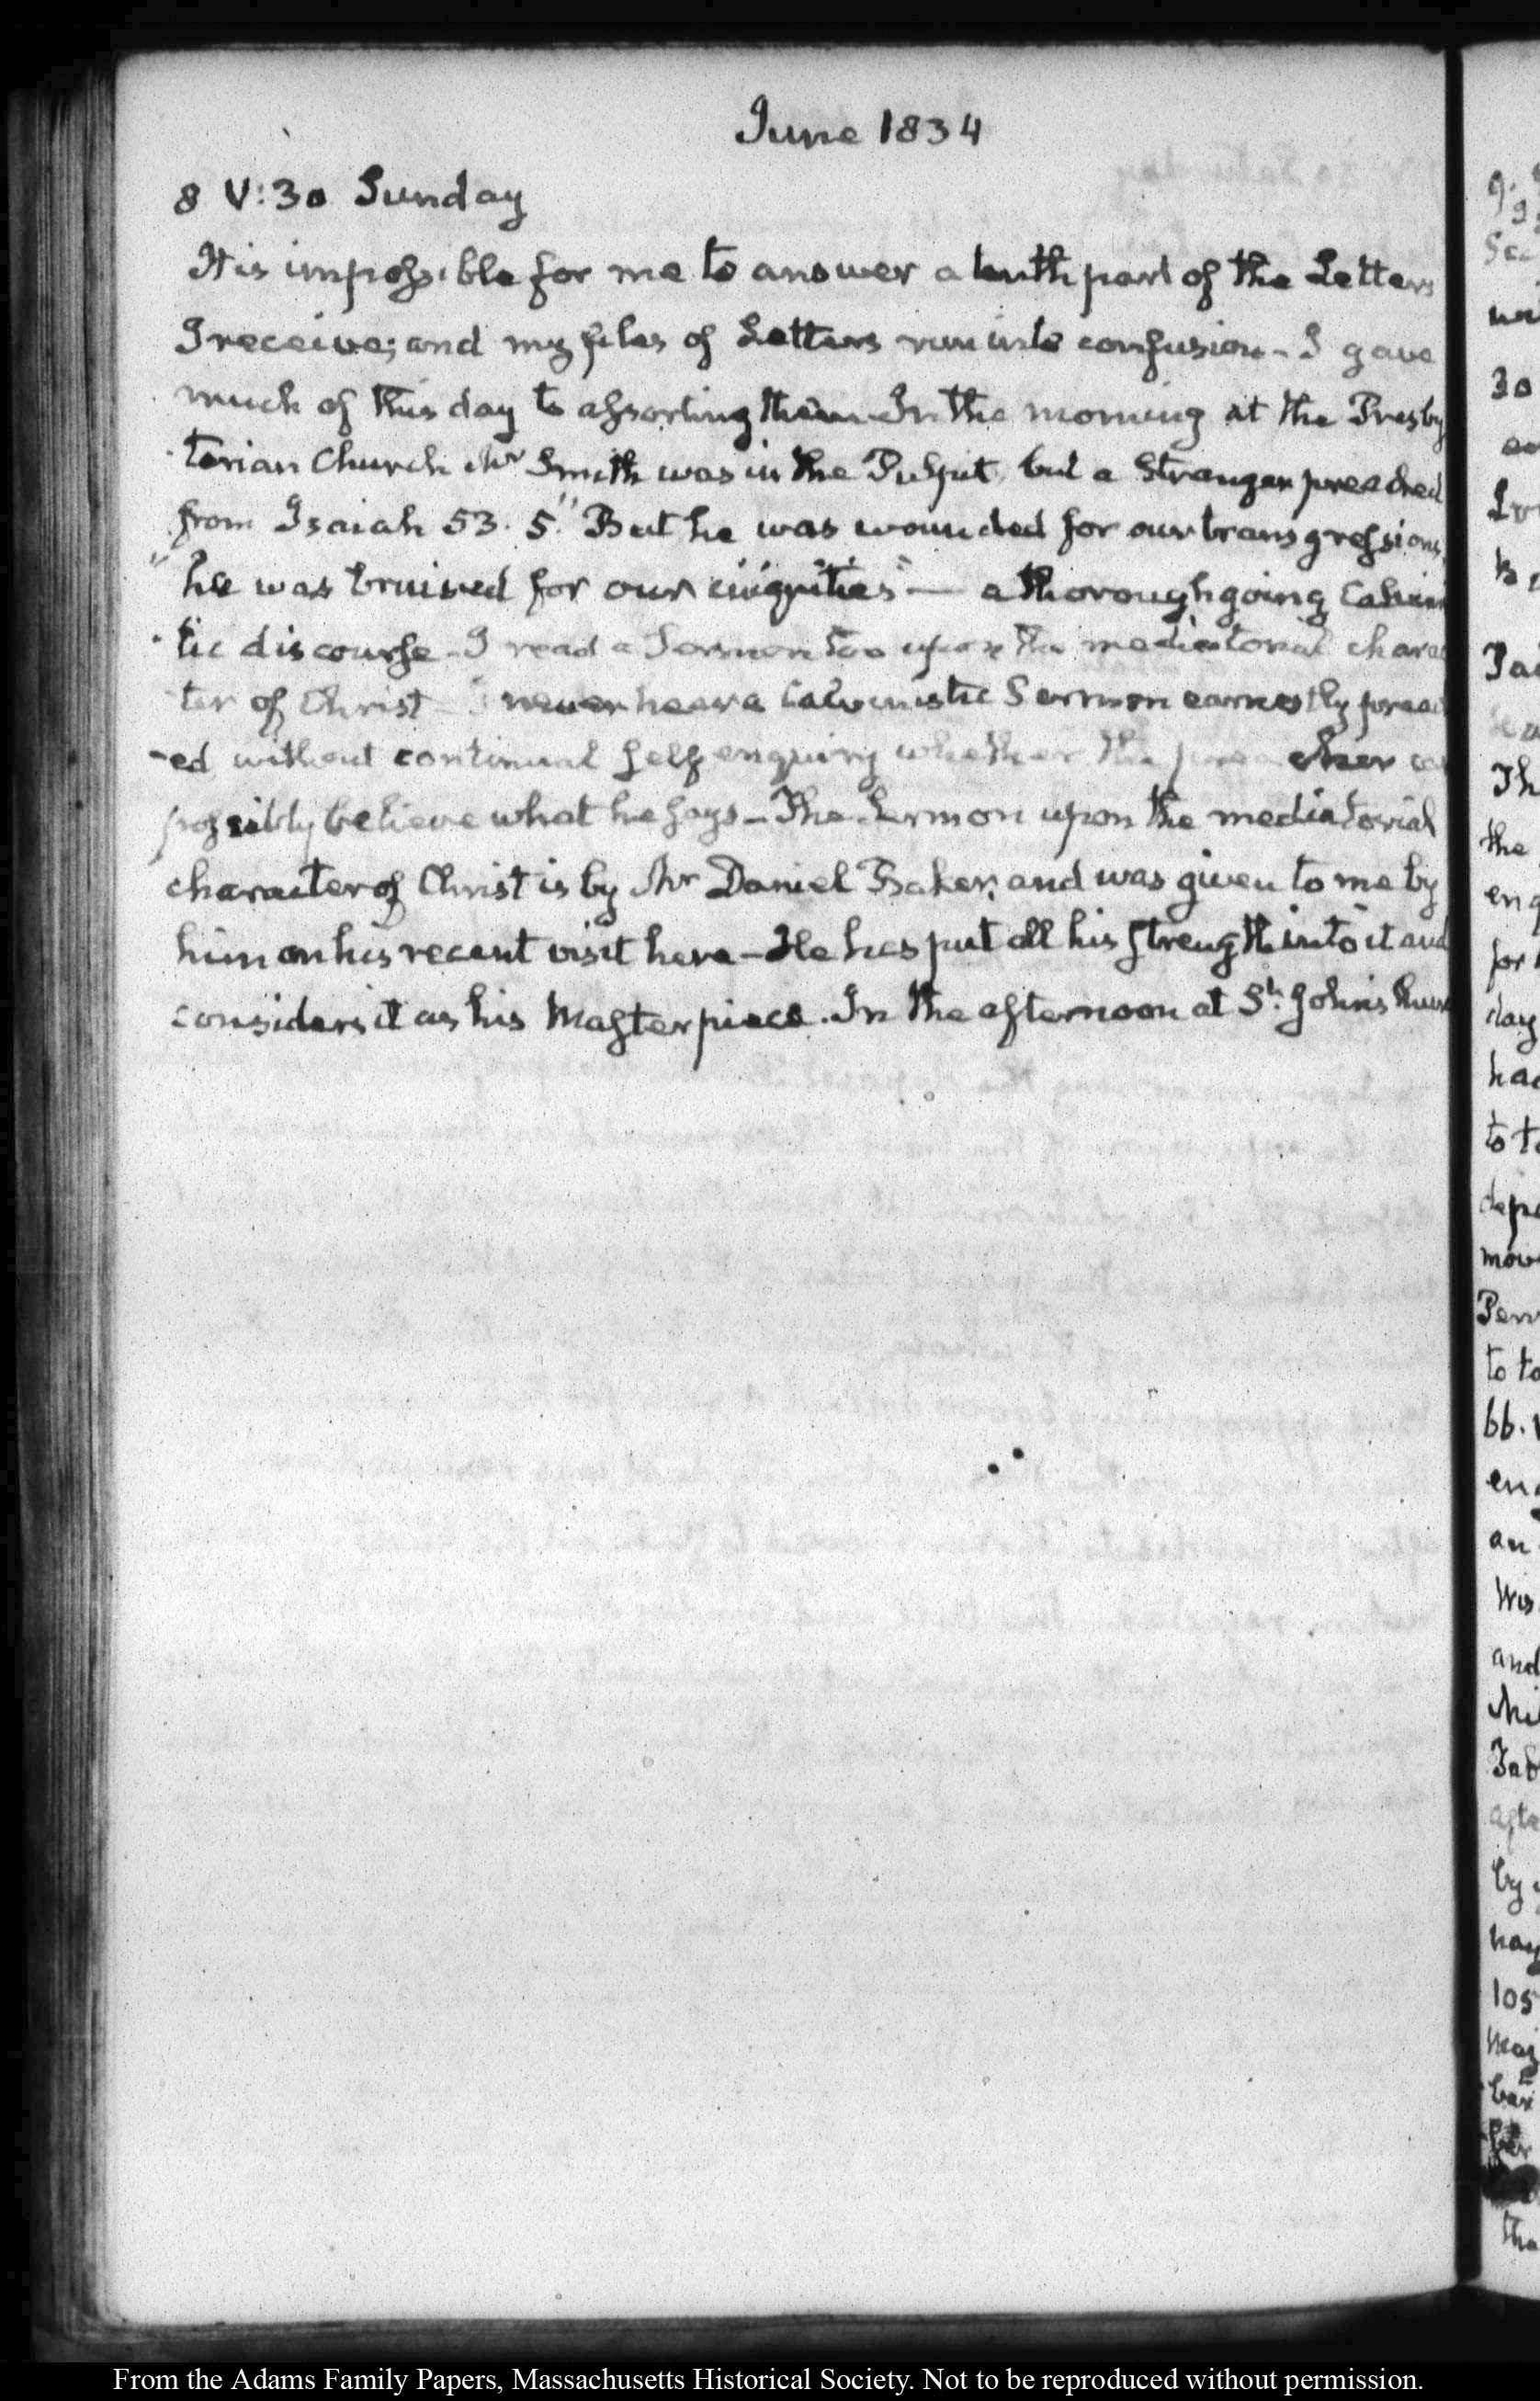 June 1834
8 V:30 Sunday
It is impossible for me to answer a tenth part of the Letters
I receive; and my files of Letters run into confusion - I gave
much of this day to assorting them - In the morning at the Presby
-terian Church Mr Smith was in the Pulpit, but a Stranger preached
from Isaiah 53. 5. "But he was wounded for our transgressions,
"he was bruised for our iniquities" — a thorough going Calvinis
-tic discourse - I read a Sermon too upon the mediatorial charac
-ter of Christ - I never hear a Calvinistic Sermon earnestly preach
-ed without continual self enquiry whether the preacher can
possibly believe what he says - The Sermon upon the mediatorial
character of Christ is by Mr Daniel Baker, and was given to me by
him on his recent visit here - He has put all his strength into it and
considers it as his Masterpiece. In the afternoon at St. John's Church
30
the
day
to to
to to
an
and
by
105
From the Adams Family Papers, Massachusetts Historical Society. Not to be reproduced without permission.